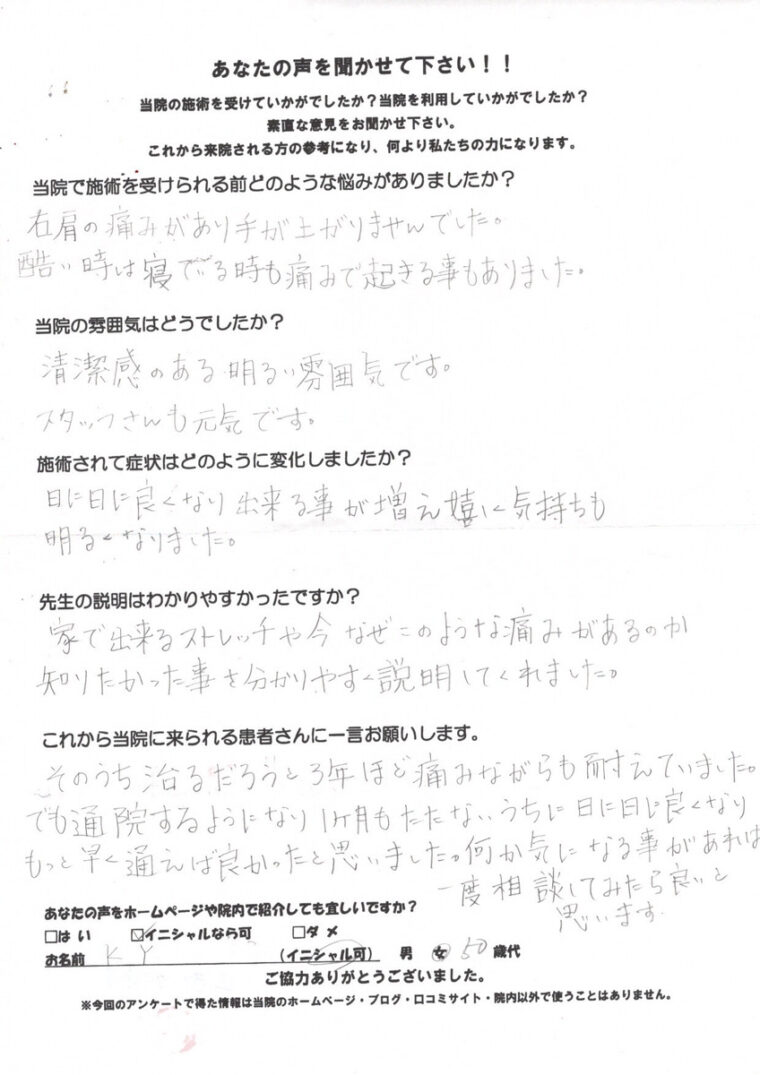 あなたの声を聞かせて下さい！！
当院の施術を受けていかがでしたか？当院を利用していかがでしたか？
素直な意見をお聞かせ下さい。
これから来院される方の参考になり、何より私たちの力になります。
当院で施術を受けられる前どのような悩みがありましたか？
右肩の痛みがあり手が上がりませんでした。
酷い時は寝でいる時も痛みで起きる事もありました。
当院の雰囲気はどうでしたか？
清潔感のある明るい雰囲気です。
スタッフさんも元気です。
施術されて症状はどのように変化しましたか？
日に日に良くなり出来る事が増え嬉しく気持ちも
明るくなりました。
先生の説明はわかりやすかったですか？
家で出来るストレッチや今なぜこのような痛みがあるのか
知りたかった事を分かりやすく説明してくれました。
これから当院に来られる患者さんに一言お願いします。
そのうち治るだろうと3年ほど痛みながらも耐えていました。
でも通院するようになり1ヶ月もたたないうちに日に日に良くなり
もっと早く通えば良かったと思いました。何か気になる事があれば
一度相談してみたら良いと
思います。
あなたの声をホームページや院内で紹介しても宜しいですか？
□はい ☑イニシャルなら可 □ダメ
お名前 K Y （イニシャル可） 男 女 50歳代
ご協力ありがとうございました。
※今回のアンケートで得た情報は当院のホームページ・ブログ・口コミサイト・院内以外で使うことはありません。